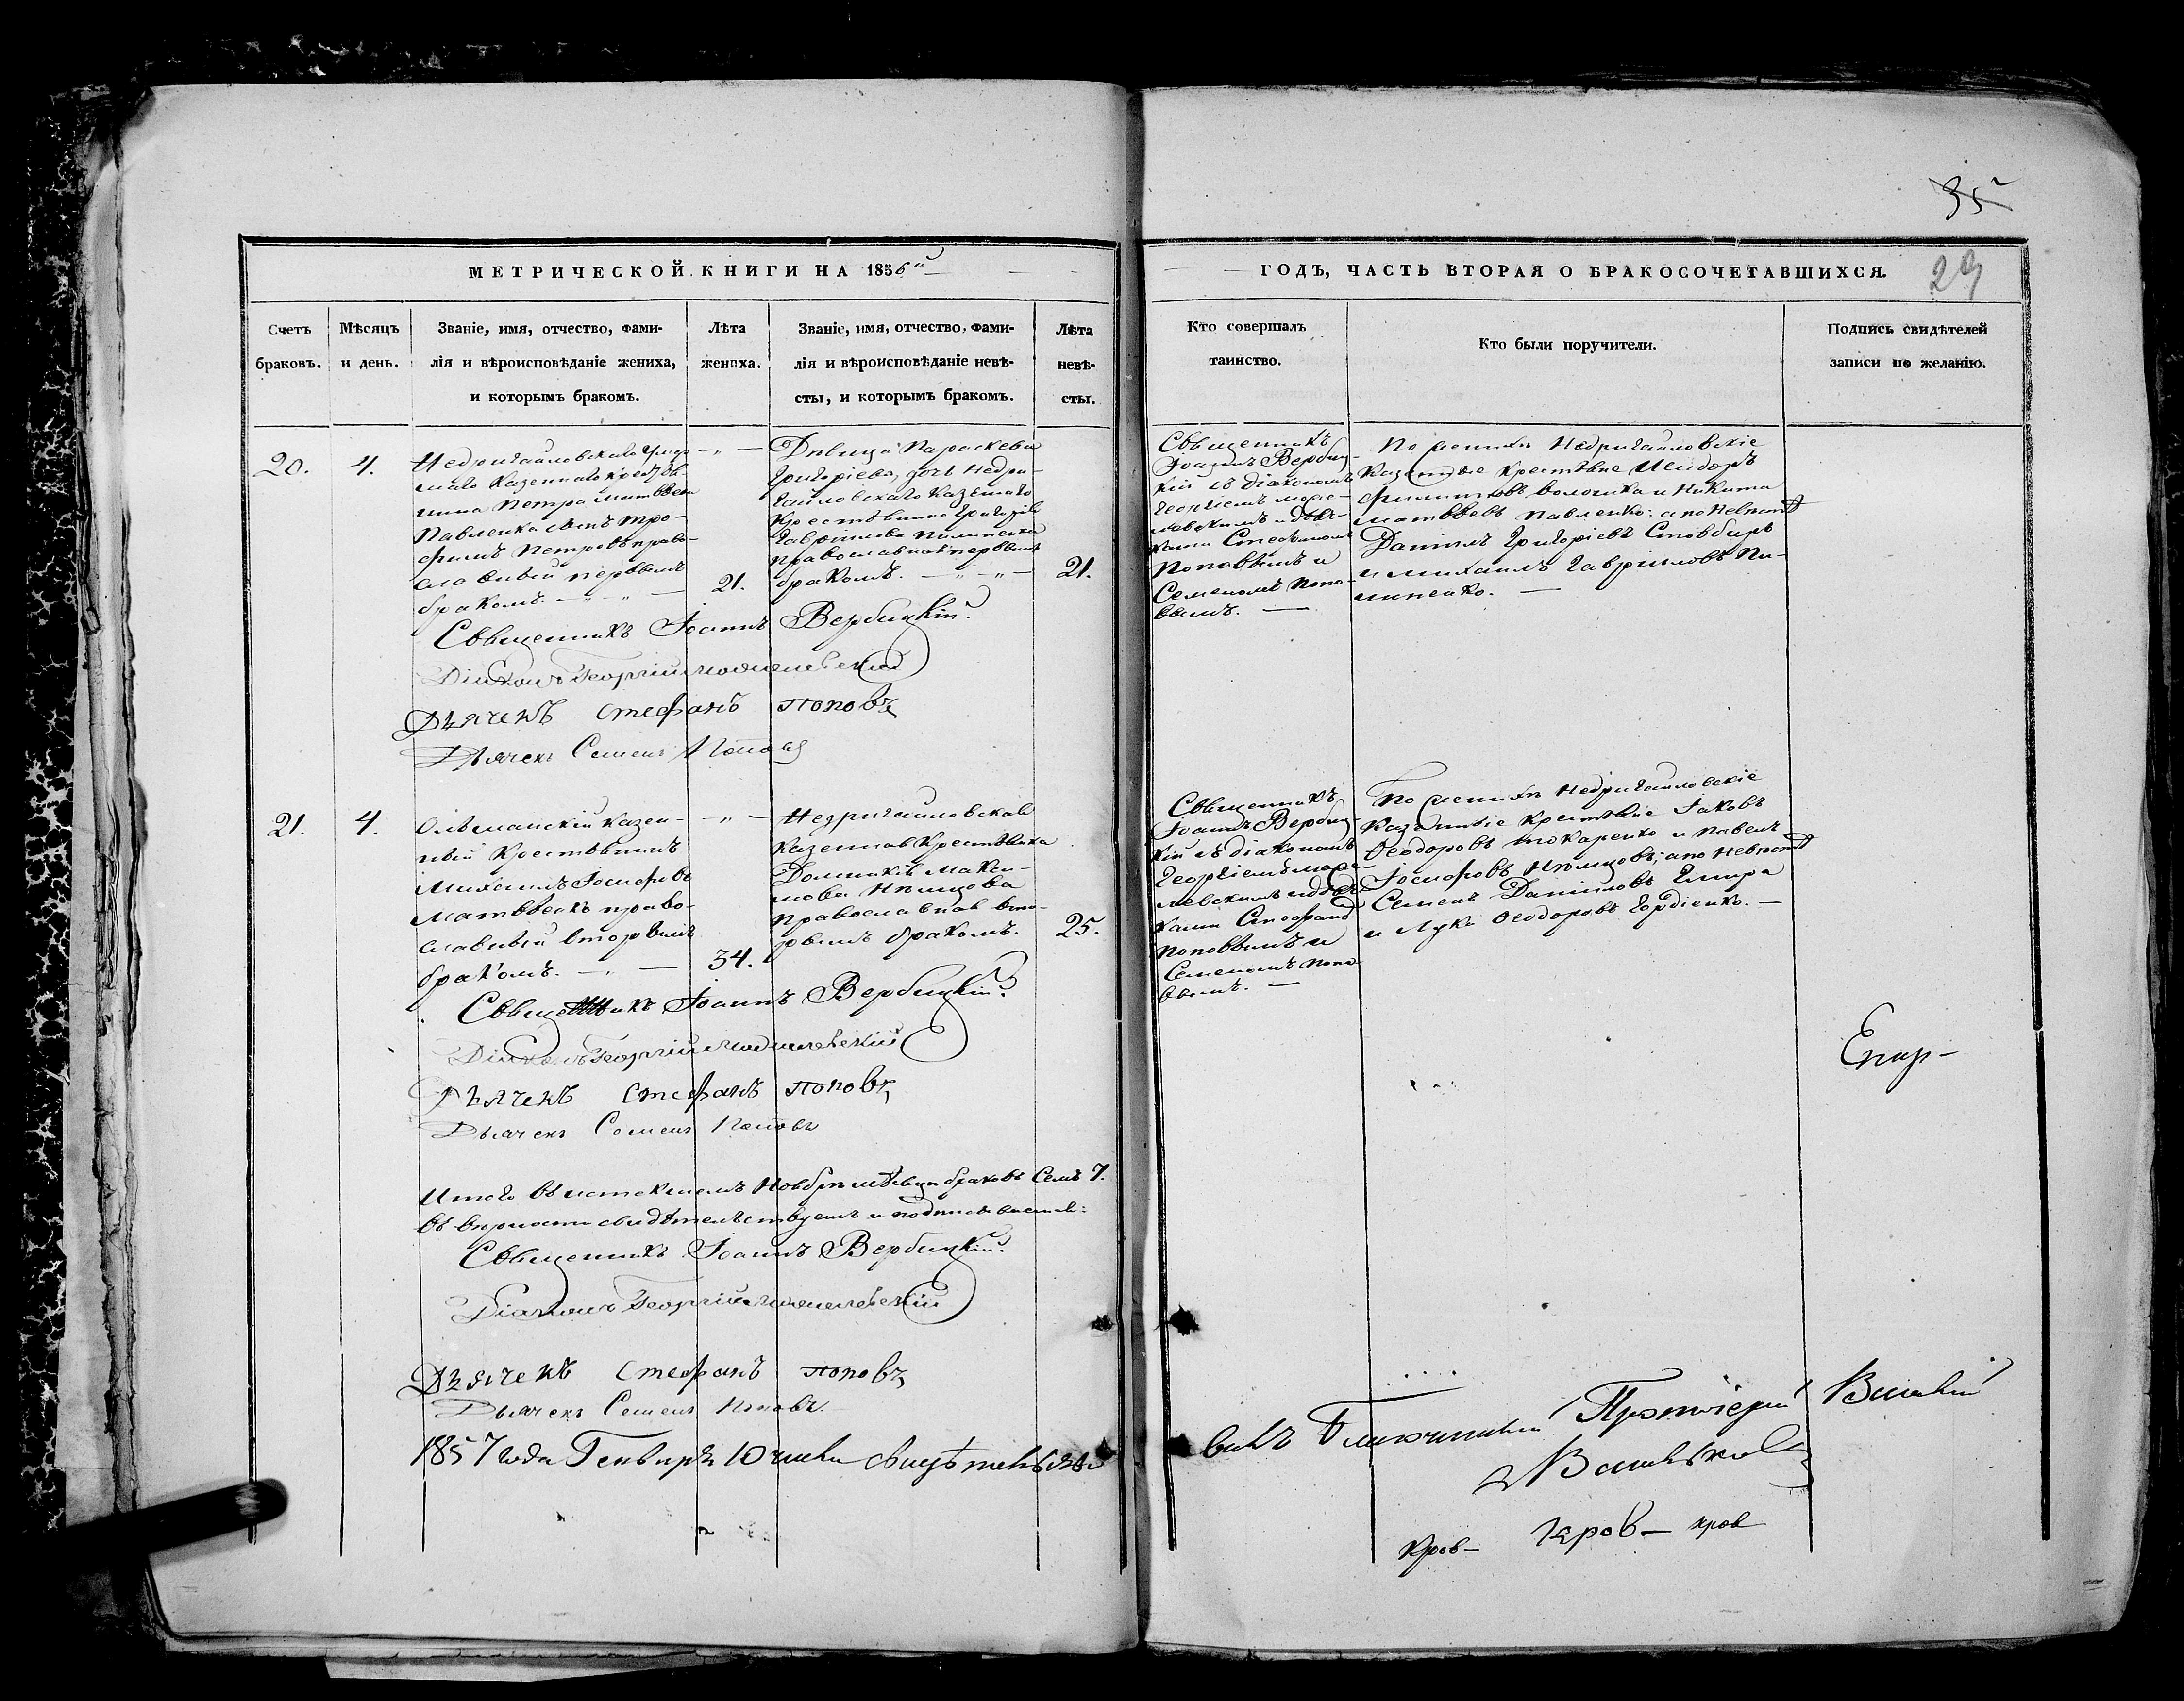 35
МЕТРИЧЕСКОЙ КНИГИ НА 1856й
ГОДЪ, ЧАСТЬ ВТОРАЯ О БРАКОСОЧЕТАВШИХСЯ.
29
Счетъ
браковъ.
Мѣсяцъ
и день.
Званіе, имя, отчество, фами-
лія и вѣроисповѣданіе жениха,
и которымъ бракомъ.
Лѣта
жениха.
Званіе, имя, отчество, фами-
лія и вѣроисповѣданіе невѣ-
сты, и которымъ бракомъ.
Лѣта
невѣ-
сты.
Кто совершалъ
таинство.
Кто были поручители.
Подпись свидѣтелей
записи по желанію.
20.
4.
Недригайловскаго умер-
шаго казеннаго крестья-
нина Петра Матвѣева
Павленка сынъ Тро-
фимъ Петровъ право-
славный первымъ
бракомъ.
21.
Дѣвица Параскева
Григоріева, дочь Недри-
гайловскаго казеннаго
крестьянина Григорія
Гавріилова Пилипенка
православная первымъ
бракомъ.
21.
Священникъ
Іоаннъ Вербиц-
кій съ діакономъ
Георгіемъ
Стефаномъ
Поповымъ и
Семеномъ Попо-
вымъ.
По женихѣ Недригайловскіе
казенные крестьяне Исидоръ
Филипповъ Волошка и Никита
Матвѣевъ Павленко; а по невѣстѣ
Даніилъ Григоріевъ Стовбиръ
и Михаилъ Гавріиловъ Пи-
липенко.
Священникъ Іоаннъ Вербицкій.
Діаконъ Георгій
Дьячекъ Стефанъ Поповъ
Дьячекъ Семенъ Поповъ
21.
4.
казен-
ный крестьянинъ
Михаилъ Іосифовъ
право-
славный вторымъ
бракомъ.
34.
Недригайловская
казенная крестьянка
Домникія Макси-
мова
православная вто-
рымъ бракомъ.
25.
Священникъ
Іоаннъ Вербиц-
кій съ діакономъ
Георгіемъ
Стефаномъ
Поповымъ и
Семеномъ Попо-
вымъ.
По женихѣ Недригайловскіе
казенные крестьяне Іаковъ
Ѳеодоровъ Токаренко и Павелъ
Іосифовъ а по невѣстѣ
Семенъ Даніиловъ
и Лука Ѳеодоровъ Гордіенко.
Священникъ Іоаннъ Вербицкій.
Діаконъ Георгій
Дьячекъ Стефанъ Поповъ
Дьячекъ Семенъ Поповъ
Итого въ истекшемъ Ноябрѣ мѣсяцѣ браковъ семь 7.
въ вѣрности свидѣтельствуемъ и подписываемся:
Священникъ Іоаннъ Вербицкій.
Діаконъ Георгій
Дьячекъ Стефанъ Поповъ
Дьячекъ Семенъ Поповъ.
1857 года Генваря 10 числа свидѣтельство-
валъ Благочинный Протоіерей
Кров- Кров- кров